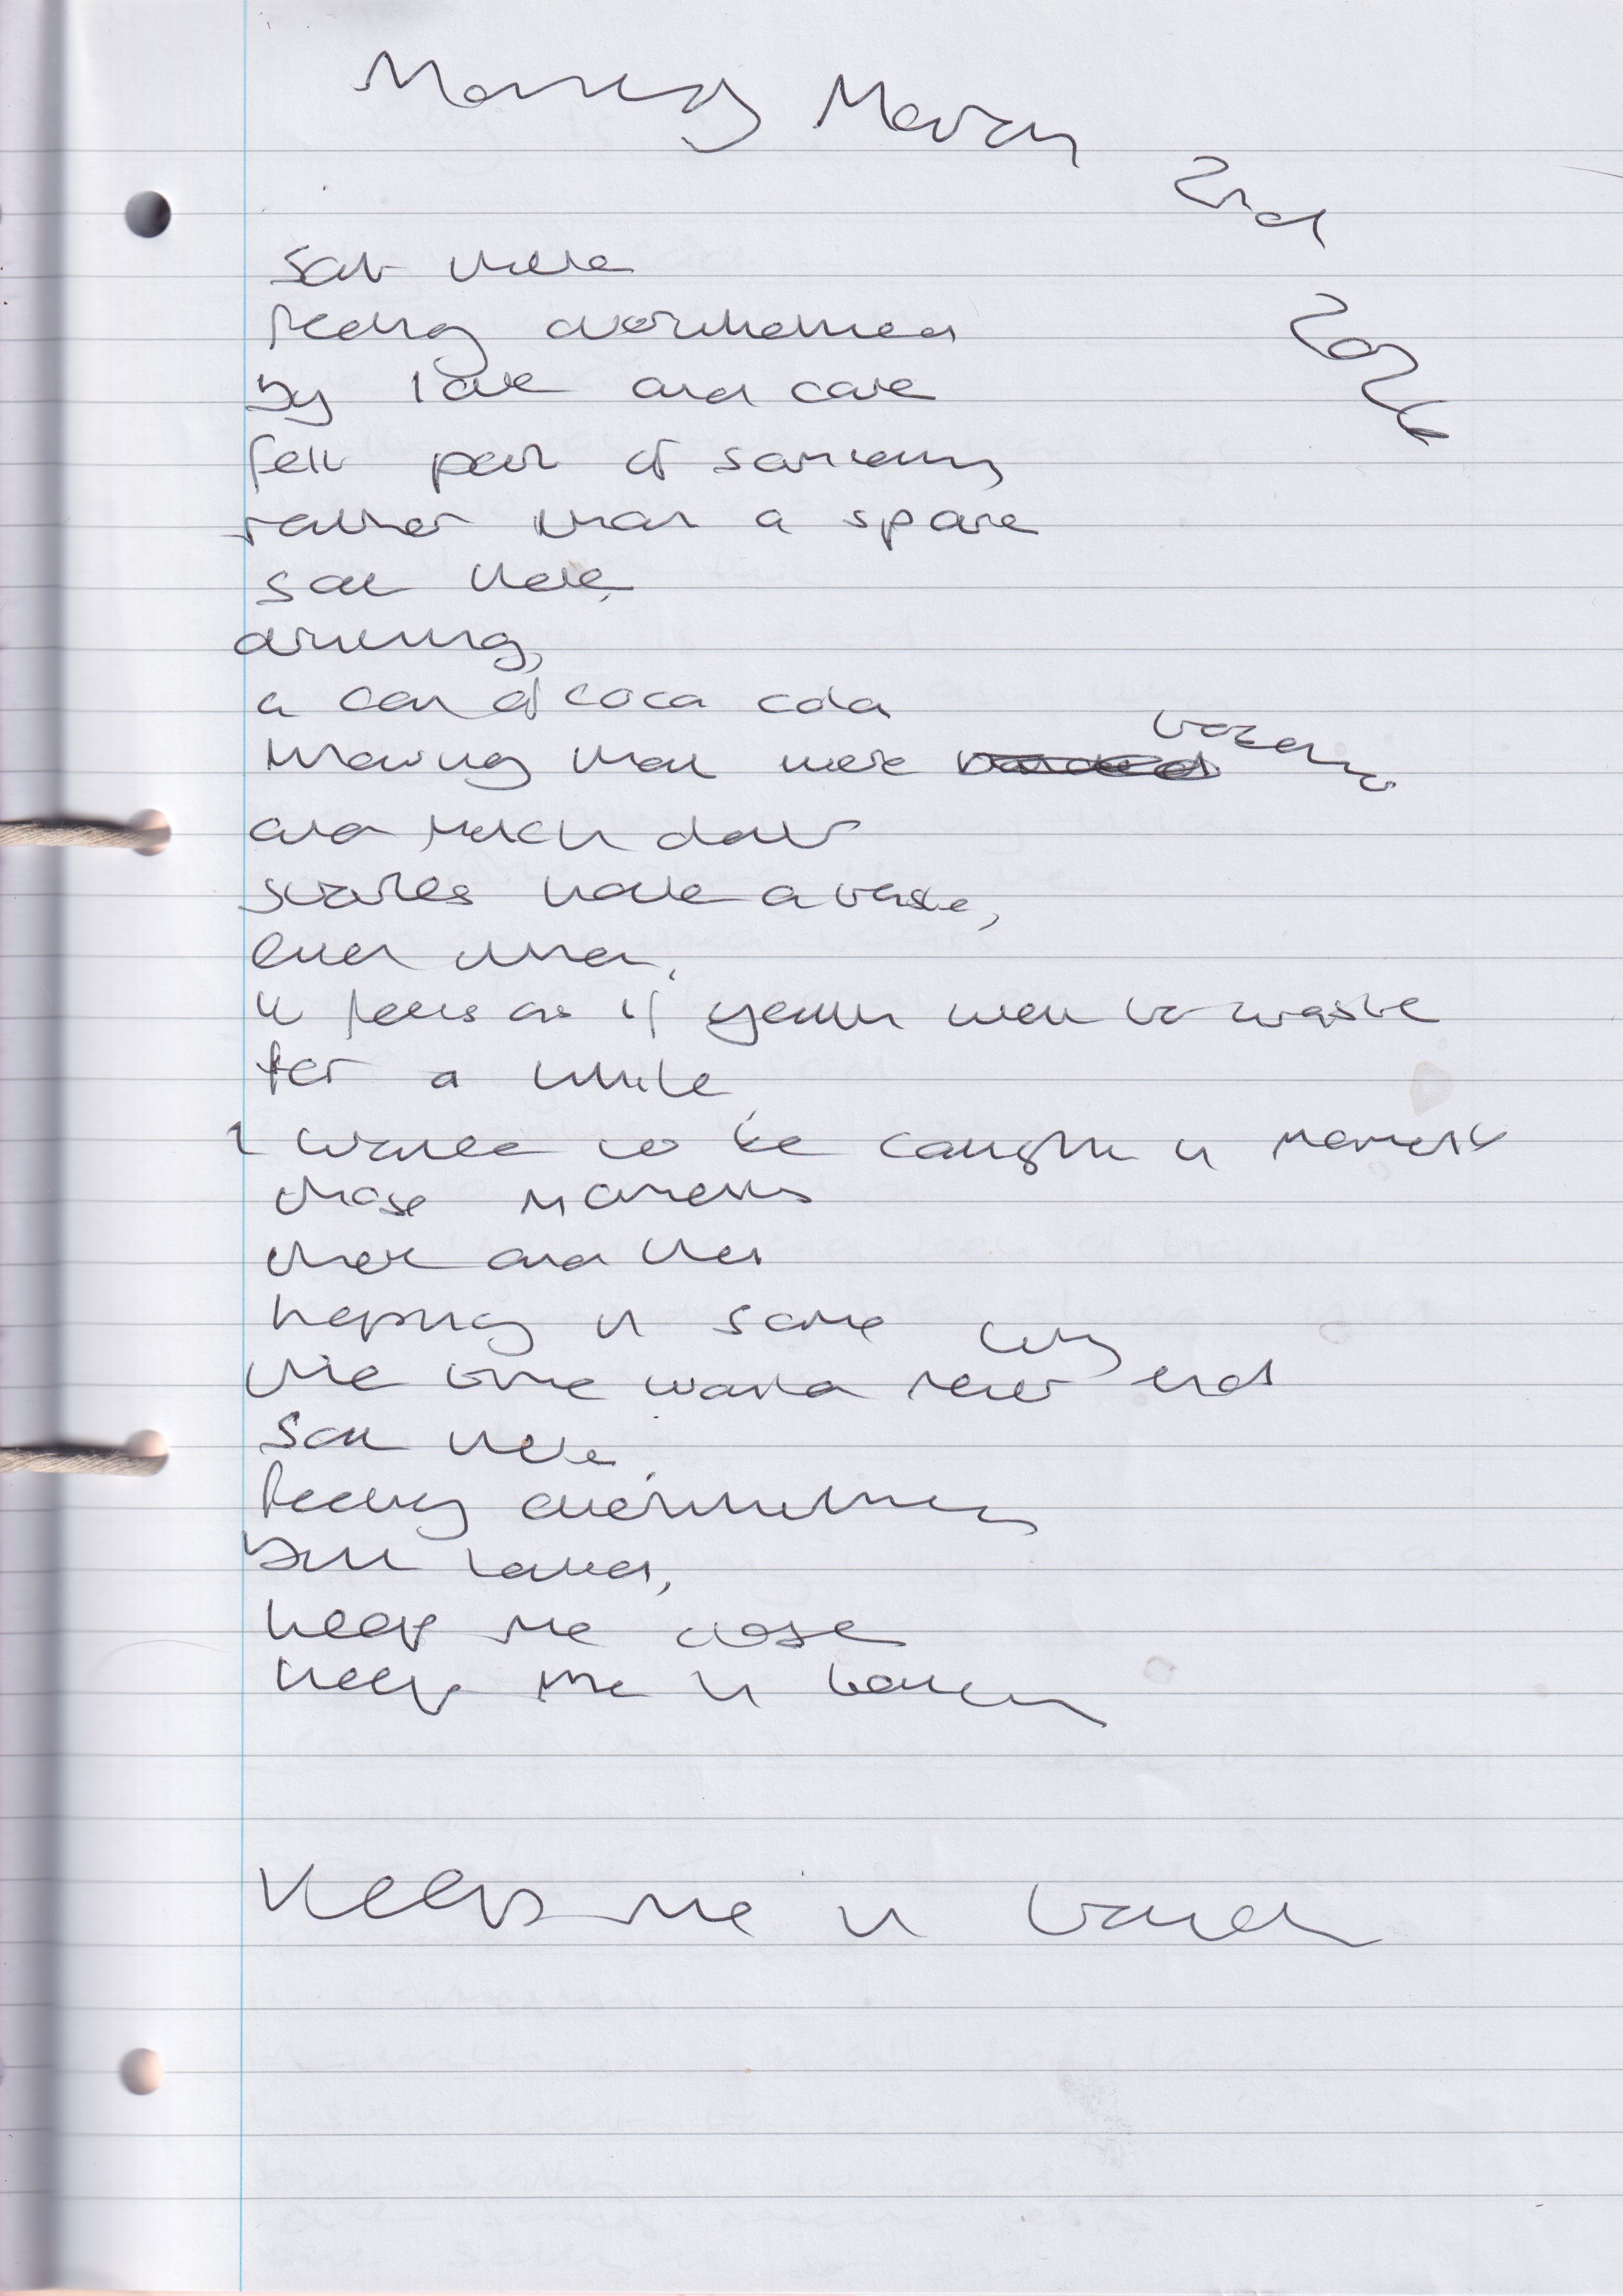 Monday March
2nd
2026
Sat there
feeling overwhelmed
by love and care
felt part of something
rather than a spare
sat there,
drinking,
a can of coca cola
knowing that were
and much doubt
stories have a taste,
even when,
it feels as if youth went to waste
for a while,
I wanted to be caught in moments
those moments
there and then
hoping in some way
the time would never end
Sat there,
feeling overwhelming
but loved,
keep me close
keep me in touch
Keep me in touch